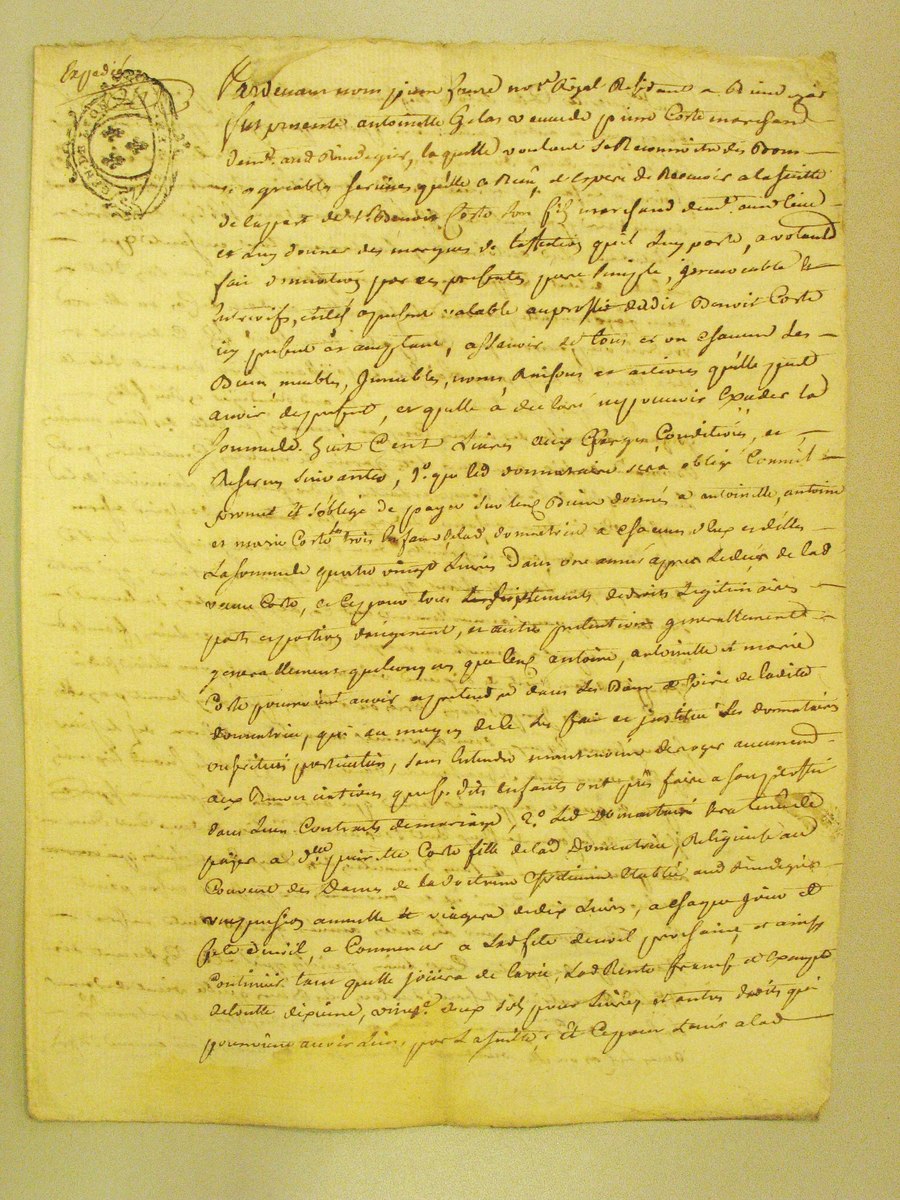 Expedié
GEN DE LYON
Pardevant nous pierre faure no.re Royal Resident a
fut presente antoinette Gelas veuve de pierre Coste marchand
demt. aud. laquelle voulant Reconnoitre des Bons
et agreables services quelle a Recus et Espere de Recevoir a la suitte
de la part de Sr. Benoit Coste son fils marchand demt. aud. lieu
et luy donner des marques de laffection quil luy porte, a volont.
fait donnation par ces presentes pure simple, jrrevocable et
apresent valable au proffit dudit Benoit Coste
icy present et acceptant, assavoir de tous et un chacun Les
Biens meubles, jmmeubles, noms Raisons et actions quelle peut
avoir de present, et quelle á declaré ne pouvoir Exceder la
somme de huit Cent Livres aux Charges Conditions, et
Reserves suivantes, 1.o que led. donnataire sera obligé Comme il
promet et soblige de payer sur les Biens donnés a antoinette, antoine
et marie Coste trois Enfans de lad. donnatrice a chacun deux et delles
La somme de quatre vingt Livres dans une année apres Le deces de lad.
veuve Coste, et ce pour tous de droits Legitimaires
parts et portions daugment, et autres pretentions generallement
generallement quelconques que les antoine, antoinette et marie
Coste pourroient avoir et pretendre dans les Biens et hoirie de ladite
donnatrice, qui au moyen de ce Les fait et jnstitue Les donnataires
ou heritiers particuliers, sans Entendre neantmoins deroger aucunemt.
aux Renonciations que sesdits enfants ont pû faire a son proffit
dans Leur Contrats de mariage, 2.o Led. Donnataire sera tenu de
payer a Dlle. Coste fille de lad. Donnatrice, Religieuse au
Couvent des Dames de la doctrine Chretienne Etablie aud.
une pension annuelle et viagere de dix Livres, a chaque jour et
fete de noël, a Commencer a La fete de noël prochaine, et ainsy
Continuer tant quelle jouira de la vie, Lad. Rente franche et Exempte
de toutte dixieme, vingt. deux sols pour Livres, et autres droits qui
pourroient avoir Lieu, par La suitte. et Ce pour tenir a lad.